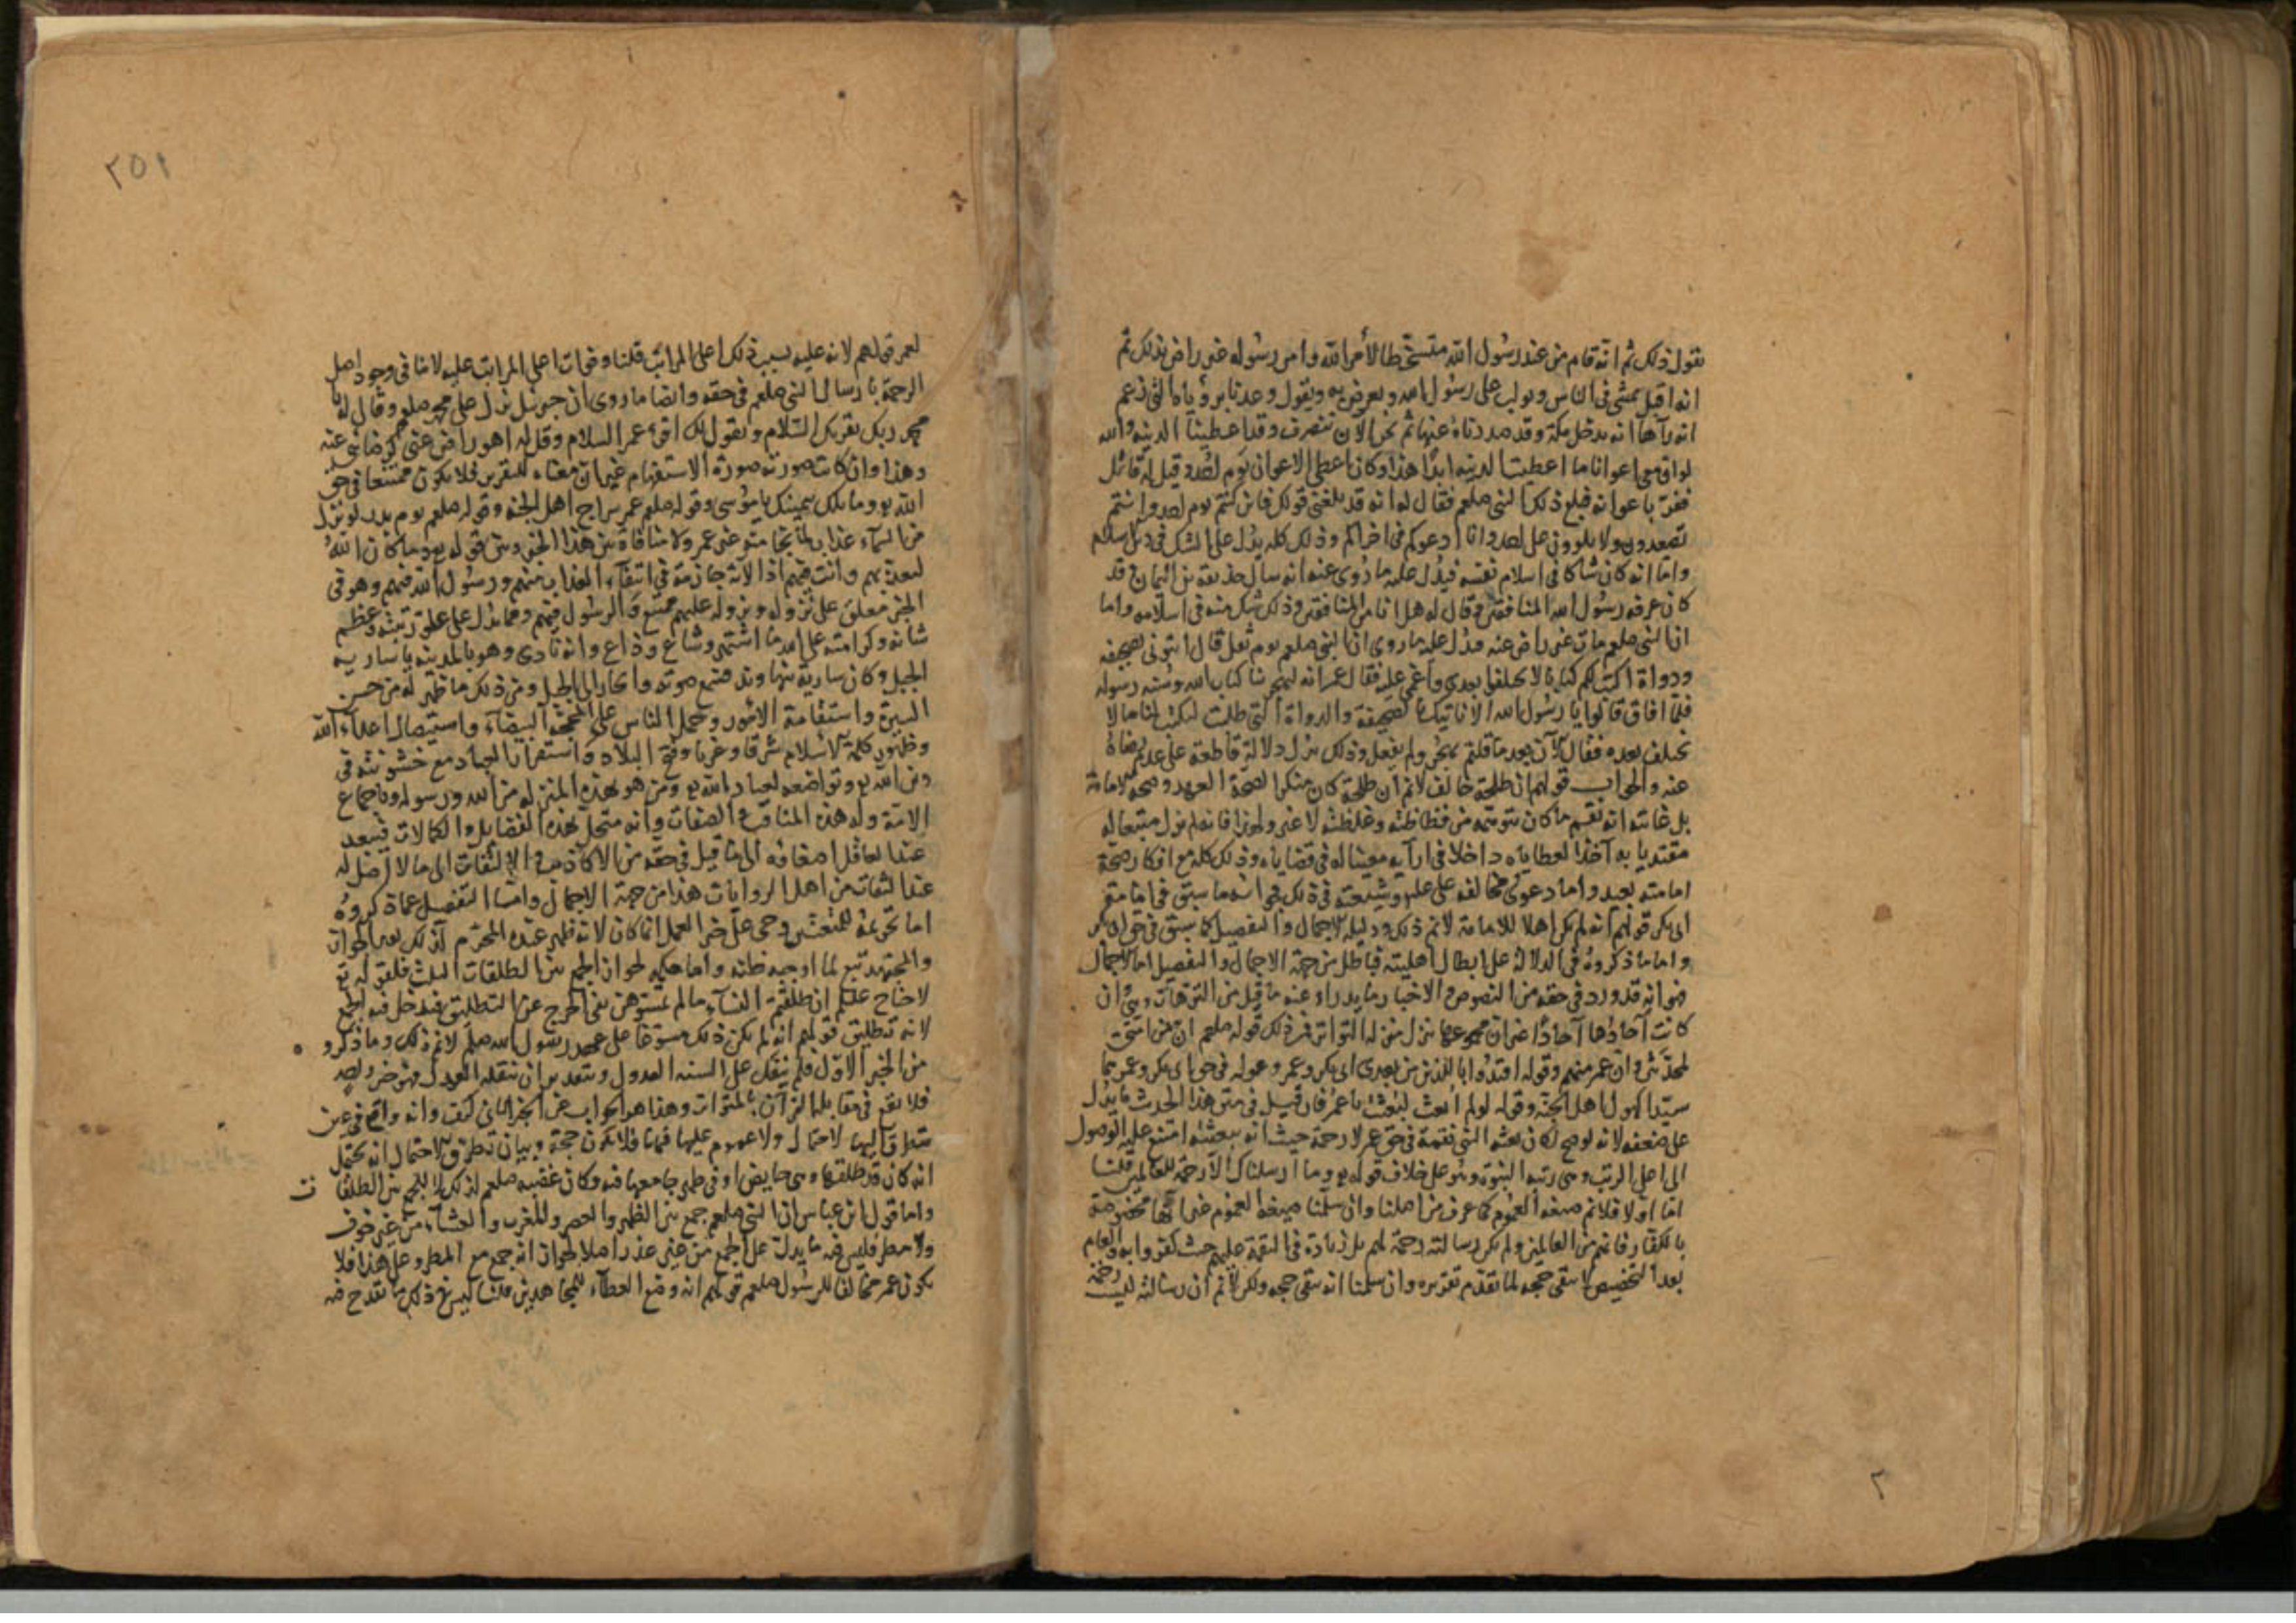 نقول ذلك ثم انه قام من عند رسول الله متسخطا لأمر الله وامر رسوله غير راض بذلك ثم
انه اقبل يمشى فى الناس ويولب على رسول الله ويعرض به ويقول وعدنا برؤياه التى زعم
انه رآها انه يدخل مكة وقد صددناه عنها ثم نحن الان ننصرف وقد اعطينا الدنية والله
لو ان معى اعوانا ما اعطيت الدنيه ابدا هذا وكان اعطى الاعوان يوم احد وقيل له قاتل
ففر باعوانه فبلغ ذلك النبى صلعم فقال له انه قد بلغنى قولك فاين كنتم يوم احد وانتم
تصعدون ولا تلوون على احد وانا ادعوكم فى اخراكم وذلك كله يدل على الشك فى دين الاسلام
واما انه كان شاكا فى اسلام نفسه فيدل عليه ما روى عنه انه سال حذيفة بن اليمان وقد
كان عرفه رسول الله المنافقين وقال له هل انا من المنافقين وذلك شك منه فى اسلامه واما
ان النبى صلعم مات غير راض عنه فيدل عليه ما روى ان النبى صلعم يوم ثقل قال ايتونى بصحيفه
ودواة اكتب لكم كتابا لا تختلفوا بعدى واغمى عليه فقال عمر انه ليهجر حسبنا كتاب الله وسنه رسوله
فلما افاق قالوا يا رسول الله الا ناتيك بالصحيفة والدواة التى طلبت لتكتب لنا ما لا
نختلف بعده فقال الآن بعد ما قلتم يهجر ولم يفعل وذلك يدل دلالة قاطعة على عدم رضاه
عنه والجواب قولهم ان طلحة خالف لا نم ان طلحة كان منكرا لصحة العهد وصحة الامامة
بل غايته انه نقم ما كان يتوهمه من فظاظته وغلظته لا غير ولهذا فانه لم يزل متبعا له
مقتديا به آخذا لعطاياه داخلا فى آرايه معينا له فى قضاياه وذلك كله مع انكار صحة
امامته بعيد واما دعوى مخالفه على عليه وشيعته فى ذلك فجوابه ما سبق فى امامة
ابى بكر قولهم انه لم يكن اهلا للامامة لا نم ذلك ودليله الاجمال والتفصيل كما سبق فى حق ابى بكر
واما ما ذكروه فى الدلالة على ابطال اهليته فباطل من جهة الاجمال والتفصيل اما الاجمال
فهو انه قد ورد فى حقه من النصوص والاخبار ما يدراء عنه ما قيل من الترهات وهى وان
كانت آحادها آحادا غير ان مجموعها ينزل منزلة التواتر فمن ذلك قوله صلعم ان من امتى
لمحدثين وان عمر منهم وقوله اقتدوا باللذين من بعدى ابى بكر وعمر وقوله فى حق ابى بكر وعمر هما
سيدا كهول اهل الجنة وقوله لو لم ابعث لبعثت يا عمر فان قيل فى متن هذا الحديث ما يدل
على ضعفه لانه لو صح لكان بعثه النبى نقمة فى حق عمر لا رحمة حيث انه ببعثته امتنع عليه الوصول
الى اعلى الرتب وهى رتبه النبوة وهو على خلاف قوله تع وما ارسلناك الا رحمة للعالمين قلنا
اما اولا فلا نم صيغه العموم كما عرف من اصلنا وان سلمنا صيغة العموم غير انها مخصوصة
بالكفار فانهم من العالمين ولم تكن رسالته رحمة لهم بل زيادة فى النقمة عليهم حيث كفروا به والعام
بعد التخصيص لا يبقى حجه لما تقدم تقريره وان سلمنا انه يبقى حجه ولكن لا نم ان رسالته ليست رحمة
٢
٢٥١
لعمر قولهم لانه عليه بسبب ذلك اعلى المراتب قلنا وفوات اعلى المراتب عليه لا ينافى وجود اصل
الرحمة بارسال النبى صلعم فى حقه وايضا ما روى ان جبرئيل نزل على محمد صلعم وقال له يا
محمد ربك يقريك السلام ويقول لك اقرء عمر السلام وقل له اهو راض عنى كرضائى عنه
وهذا وان كانت صورته صورة الاستفهام غير ان معناه للتقرير فلا يكون ممتنعا فى حق
الله تع وما تلك بيمينك يا موسى وقوله صلعم عمر سراج اهل الجنه وقوله صلعم يوم بدر لو نزل
من السماء عذاب لما نجا منه غير عمر ولا منافاة بين هذا الخبر وبين قوله تع وما كان الله
ليعذبهم وانت فيهم اذ الآية جازمة فى انتفاء العذاب عنهم ورسول الله فيهم وهو فى
الخبر معلق على نزوله ونزوله عليهم ممتنع والرسول فيهم ومما يدل على علو رتبته وعظم
شانه وكرامته على الله ما اشتهر وشاع وذاع وانه نادى وهو بالمدينه يا ساريه
الجبل وكان ساريه بنهاوند فسمع صوته وانحاز الى الجبل ومن ذلك ما ظهر له من حسن
السيرة واستقامة الامور وحمل الناس على المحجة البيضاء واستيصال اعداء الله
وظهور كلمة الاسلام شرقا وغربا وفتح البلاد واستقرار العباد مع خشونته فى
دين الله تع وتواضعه لعباد الله تع ومن هو بهذه المنزله من الله ورسوله وباجماع
الامة وله هذه المناقب والصفات وانه متحل بهذه الفضايل والكمالات فيبعد
عند العاقل اصغائه الى ما قيل فى حقه من الاكاذيب والالتفات الى ما لا اصل له
عند الثقات من اهل الروايات هذا من جهة الاجمال واما التفصيل عما ذكروه
اما تحريمه للمتعتين وحى على خير العمل انما كان لانه ظهر عنده المحرم
والمجتهد تبع لما اوجبه ظنه واما حكمه بجواز الجمع بين الطلقات الثلث فلقوله تع
لا جناح عليكم ان طلقتم النساء ما لم تمسوهن نفى الحرج عن التطليق فيدخل فيه الجمع
لانه تطليق قولهم انه لم يكن ذلك مسوغا على عهد رسول الله صلعم لا نم ذلك وما ذكروه
من الخبر الاول فلم ينقل على السنه العدول وبتقدير ان ينقله العدل فهو خبر واحد
فلا يقع فى مقابله القرآن المتواتر وهذا هو الجواب عن الخبر الثانى كيف وانه واقع فى عين
يتطرق اليها الاحتمال ولا عموم عليها فيها فلا يكون حجة وبيان تطرق الاحتمال انه يحتمل
انه كان قد طلقها وهى حايض او فى طهر جامعها فيه وكان غضبه صلعم لذلك لا للجمع بين الطلقات
واما قول ابن عباس ان النبى صلعم جمع بين الظهر والعصر والمغرب والعشاء من غير خوف
ولا مطر فليس فيه ما يدل على الجمع من غير عذر اصلا لجواز انه جمع مع المطر وعلى هذا فلا
يكون عمر مخالفا للرسول صلعم قولهم انه وضع العطاء للمجاهدين قلنا ليس فى ذلك ما يقدح فيه